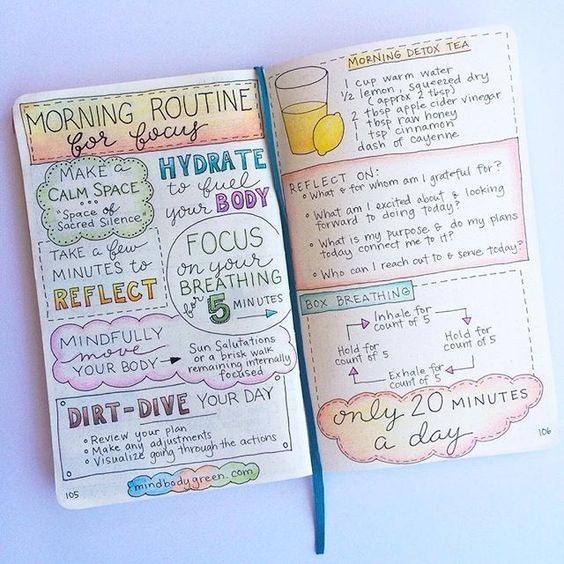 MORNING ROUTINE
for focus
MAKE A
CALM SPACE
"Space of
Sacred Silence"
HYDRATE
to fuel
your BODY
TAKE A few
MINUTES to
REFLECT
FOCUS
on your
BREATHING
for 5 MINUTES
MINDFULLY
move
YOUR BODY
Sun Salutations
or a brisk walk
remaining internally
focused
DIRT-DIVE YOUR DAY
• Review your plan
• Make any adjustments
• Visualize going through the actions
mindbodygreen.com
105
MORNING DETOX TEA
1 cup warm water
1/2 lemon, squeezed dry
(approx 2 tbsp)
2 tbsp apple cider vinegar
1 tbsp raw honey
1 tsp cinnamon
dash of cayenne
REFLECT ON:
• What & for whom am I grateful for?
• What am I excited about & looking
forward to doing today?
• What is my purpose & do my plans
today connect me to it?
• Who can I reach out to & serve today?
BOX BREATHING
Inhale for
count of 5
Hold for
count of 5
Exhale for
count of 5
Hold for
count of 5
only 20 MINUTES
a day
106